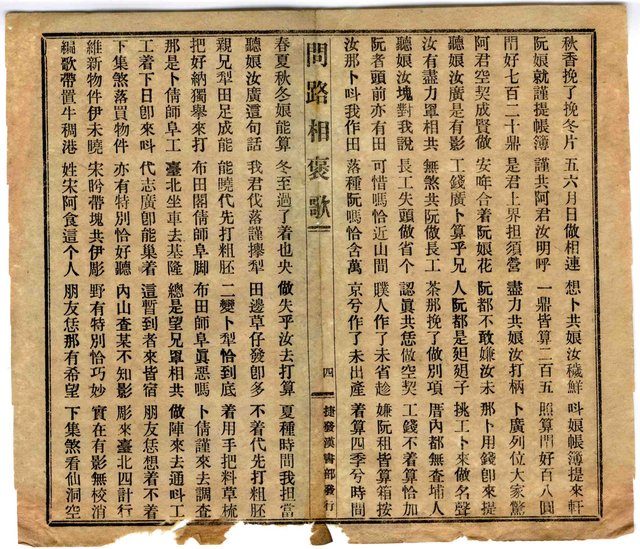 秋香挽了挽冬片 五六月日做相連 想卜共娘汝穢鮮 呌娘帳簿提來軒
阮娘就謹提帳簿 謹共阿君汝明呼 一鼎皆算二百五 照算閂好百八圓
閂好七百二十鼎 是君上界担須營 盡力共娘汝打柄 卜廣列位大家驚
阿君空契成賢做 安呣合着阮娘花 阮都不敢嫌汝未 那卜用錢卽來提
聽娘汝廣是有影 工錢廣卜算乎兄 人阮都是子 挑工卜來做名聲
汝有盡力罩相共 無煞共阮做長工 茶那挽了做別項 厝內都無查埔人
聽娘汝塊對我說 長工失頭做省个 認眞共恁做空契 工錢不着算恰加
阮者頭前亦有田 可惜嗎恰近山間 贌人作了未省趁 嫌阮租皆算箱按
汝那卜呌我作田 落種阮嗎恰含萬 京兮作了未出產 着算四季兮時間
問路相褒歌 四 捷發漢書部發行
春夏秋冬娘能算 冬至過了着也央 做失乎汝去打算 夏種時間我担當
聽娘汝廣這句話 我君伐落謹攑犁 田邊草仔發卽多 不着代先打粗胚
親兄犁田足成能 能曉代先打粗胚 二變卜犁恰到底 着用手把料草梳
把好納獨舉來打 布田閣倩師阜脚 布田師阜眞惡嗎 卜倩謹來去調查
那是卜倩師阜工 臺北坐車去基隆 總是望兄罩相共 做陣來去通呌工
工着下日卽來呌 代志廣卽能巢着 這暫到者來皆宿 朋友恁想着不着
下集煞落買物件 亦有特別恰好聽 內山查某不知影 彫來臺北四計行
維新物件伊未曉 宋盻帶塊共伊彫 野有特別恰巧妙 實在有影無校消
編歌帶置牛稠港 姓宋阿食這个人 朋友恁那有希望 下集煞看仙洞空